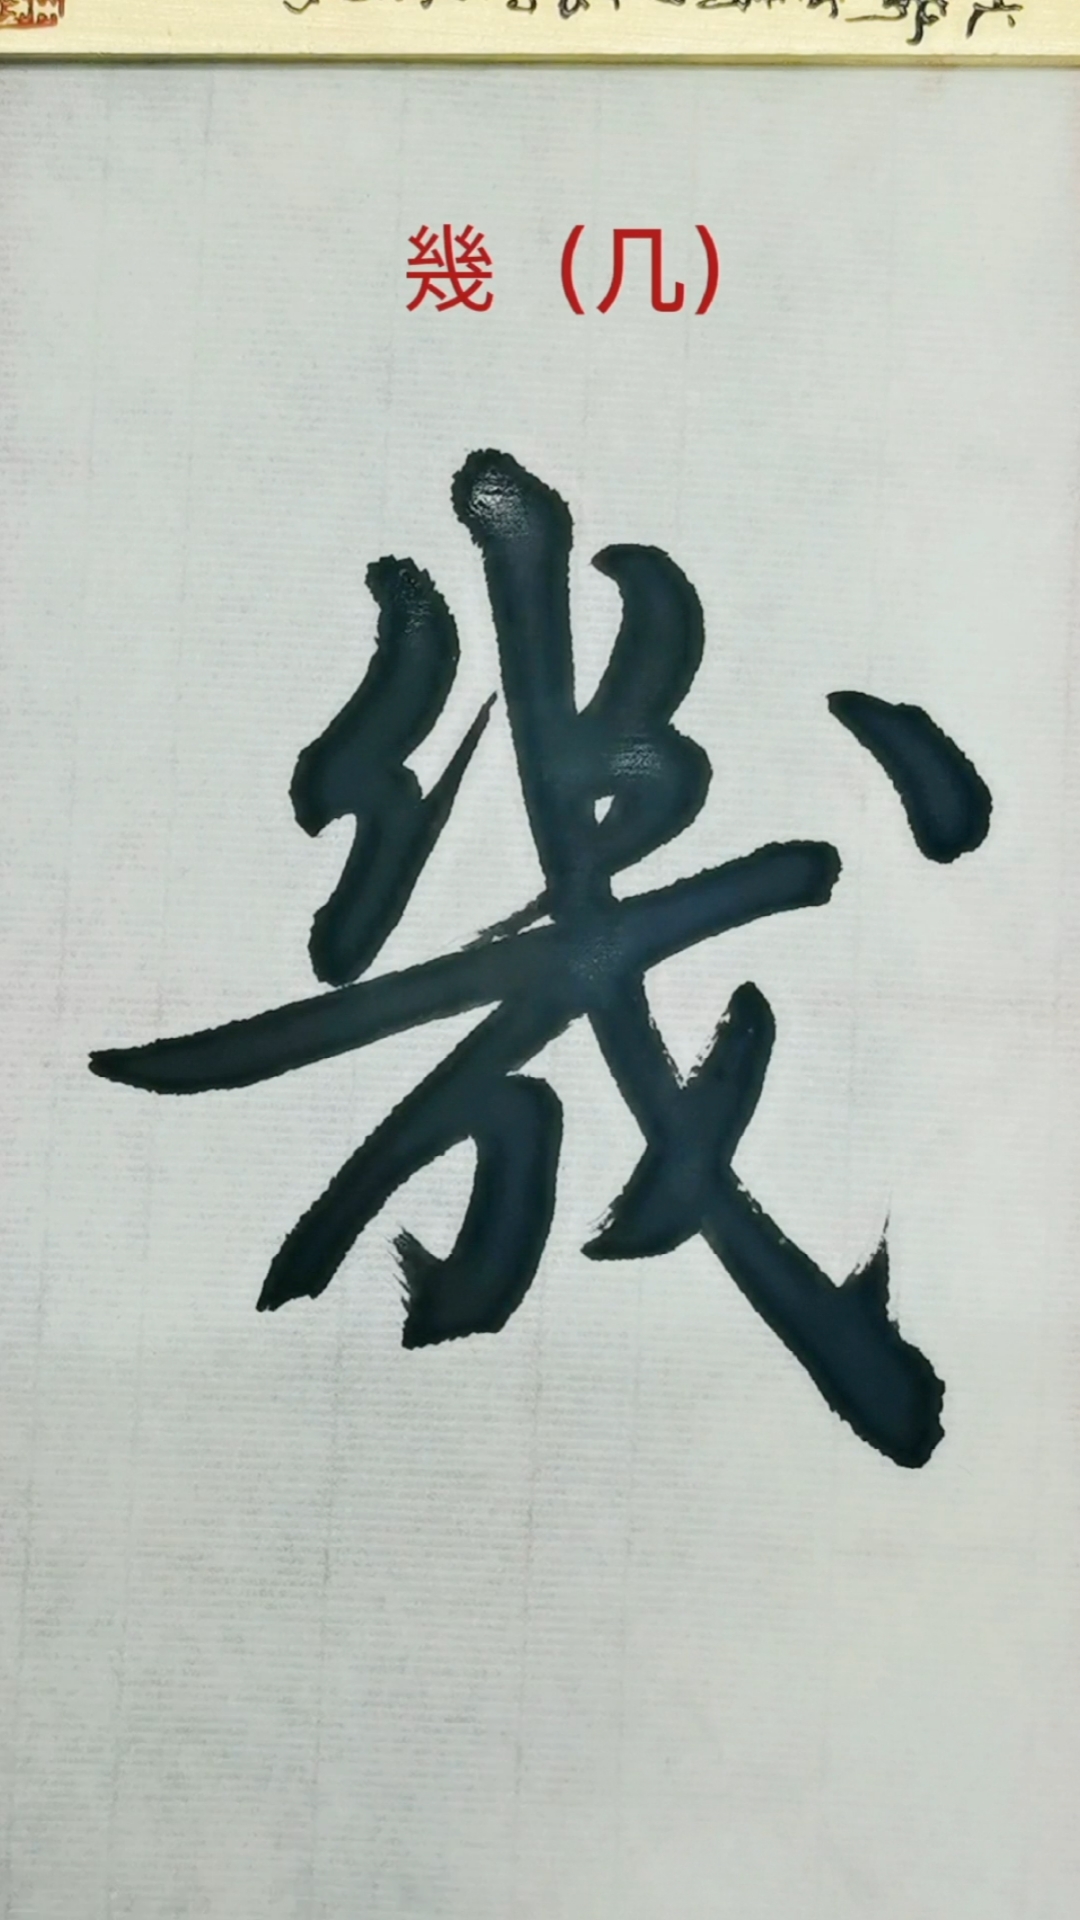 幾（几）
幾